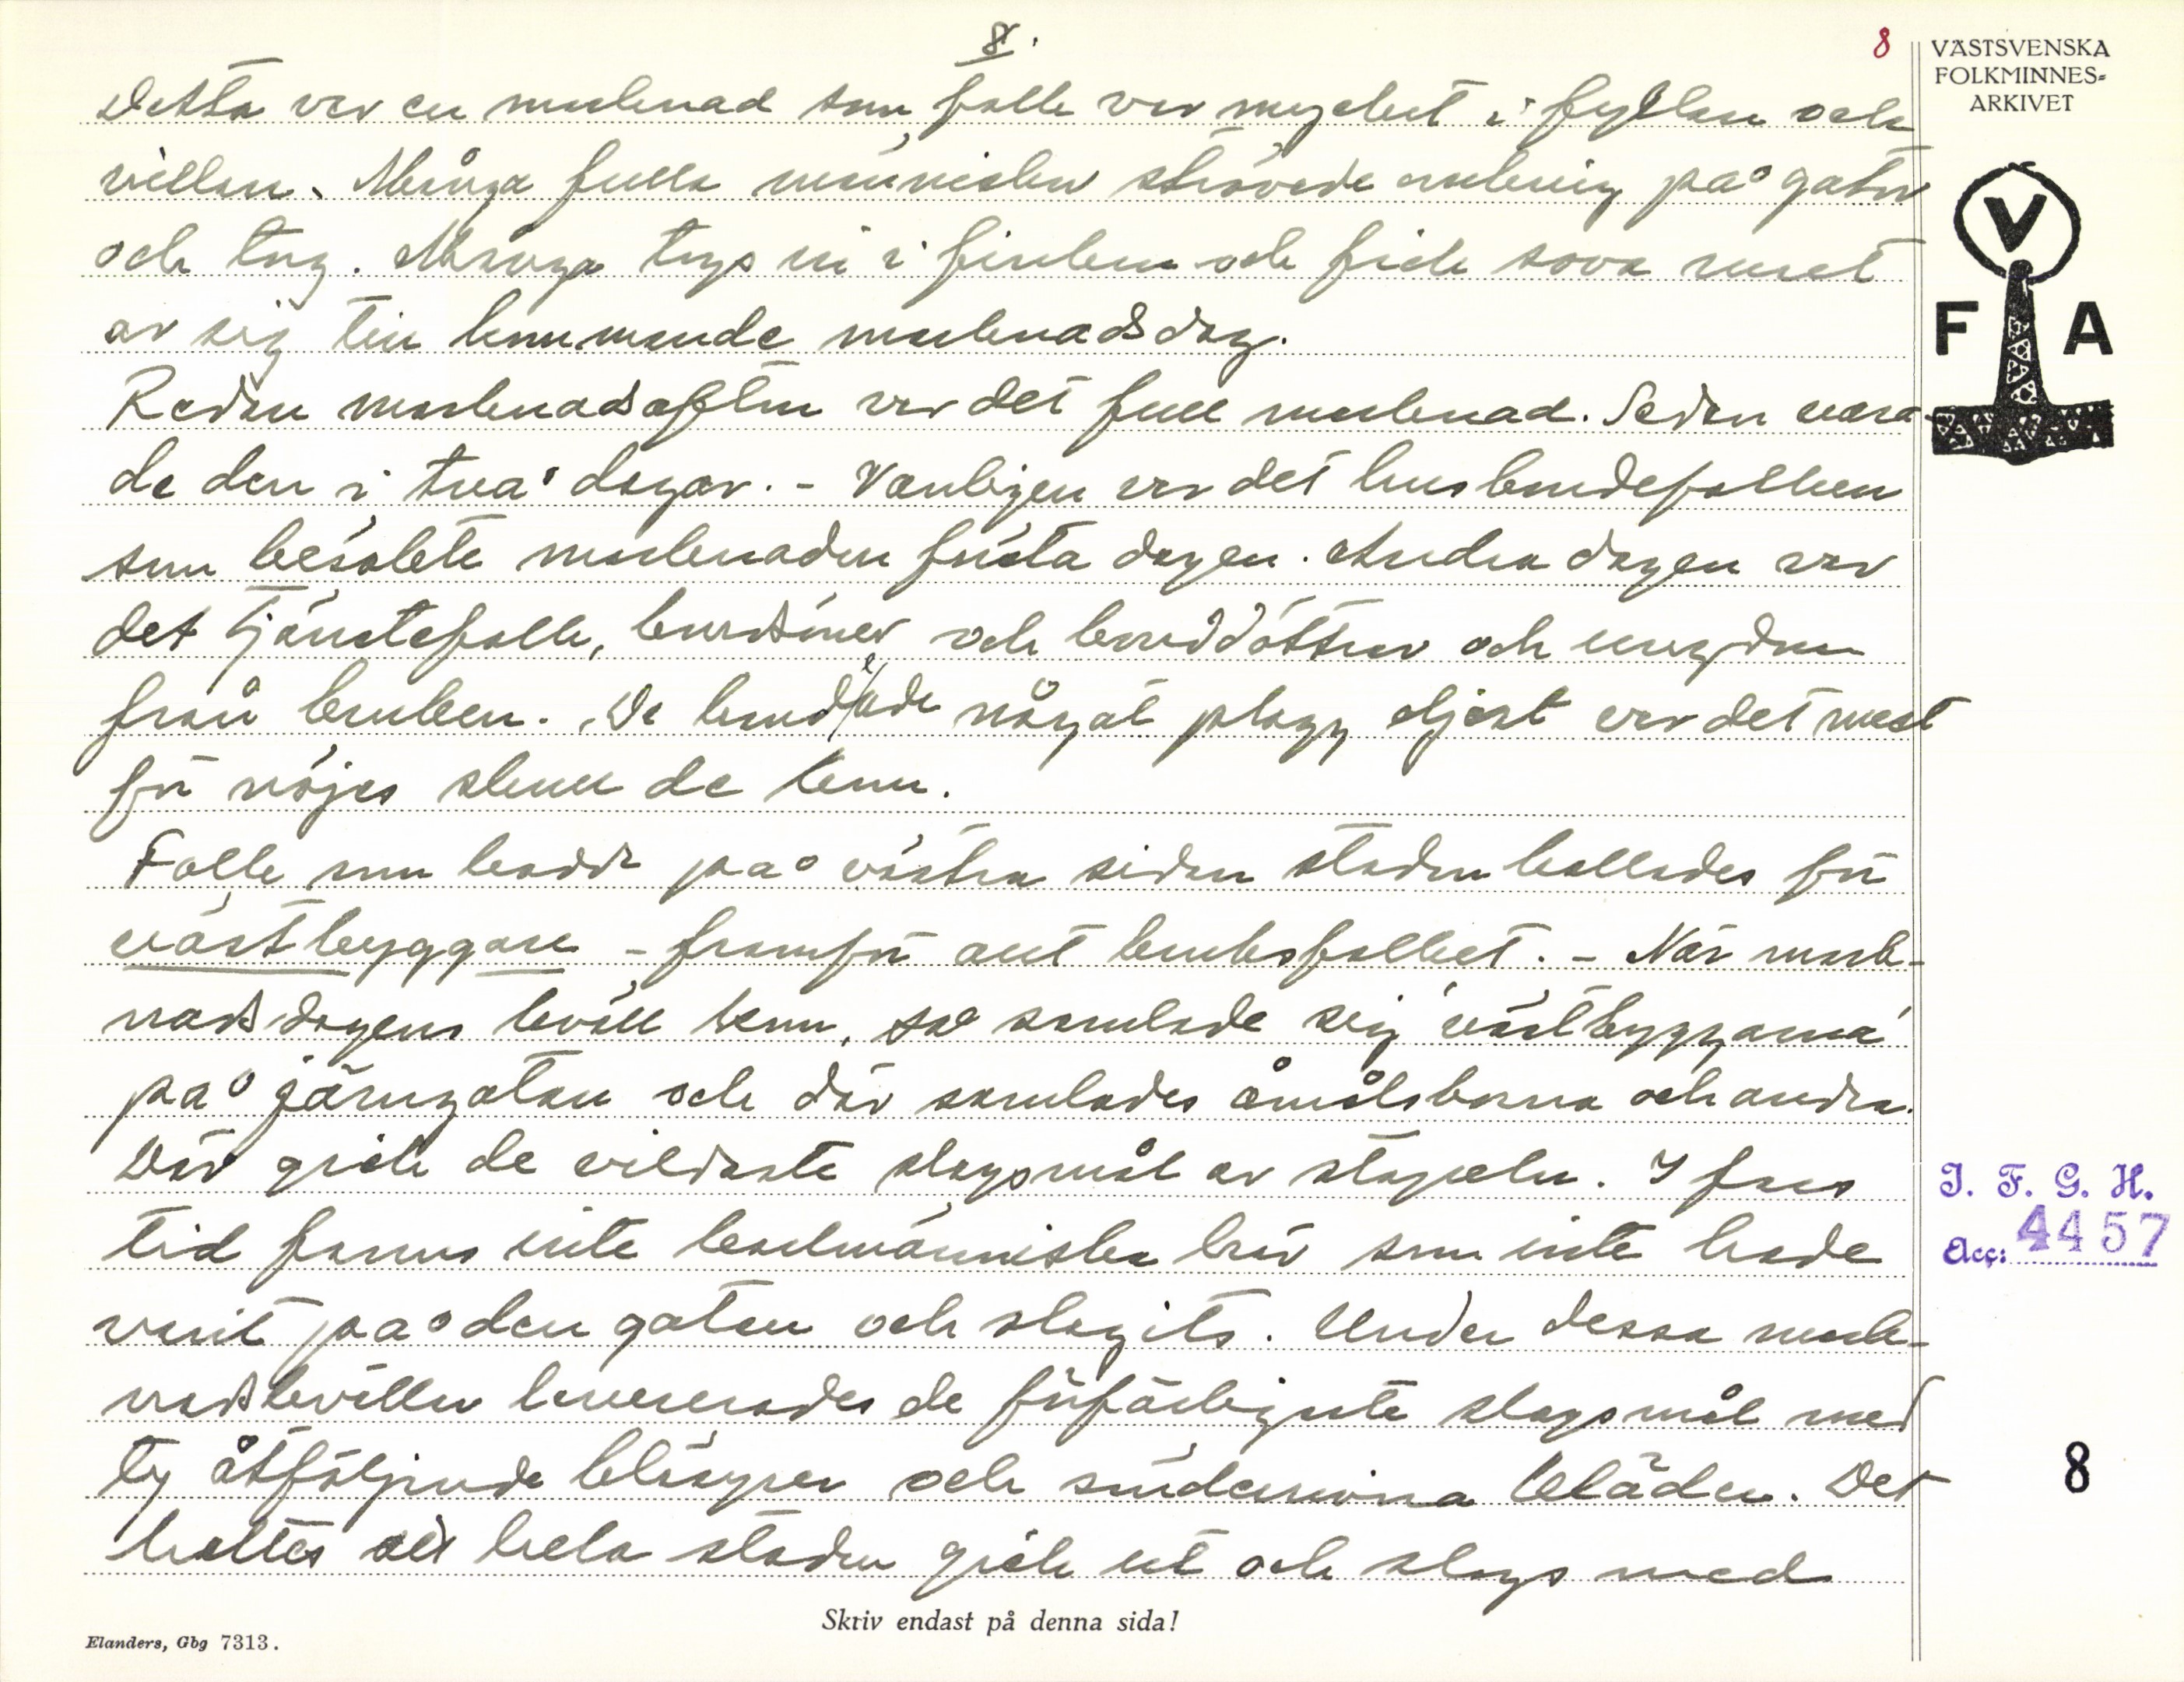 8.
8
VÄSTSVENSKA
FOLKMINNES-
ARKIVET
V
F A
Detta var en marknad som folk var mycket i fyllan och
villan. Många fulla människor strövade omkring på gator
och torg. Många togs in i finkan och fick sova ruset
av sig till kommande marknadsdag.
Redan marknadsafton var det full marknad. Sedan vara-
de den i två dagar. - Vanligen var det husbondefolken
som besökte marknaden första dagen. Andra dagen var
det tjänstefolk, bondsöner och bonddöttrar och ungdom
från bruken. De behövde något plagg eljest var det mest
för nöjes skull de kom.
Folk som bodde på västra sidan staden kallades för
västbyggare - framför allt bruksfolket. - När mark-
nadsdagens kväll kom, så samlade sig västbyggarna
på järngatan och där samlades åmålsborna och andra.
Där gick de vildaste slagsmål av stapeln. I fars
tid fanns inte karlmänniska här som inte hade
varit på den gatan och slagits. Under dessa mark-
nadskvällar levererades de förfärligaste slagsmål med
ty åtföljande blessyrer och sönderrivna kläder. Det
hettes att hela staden gick ut och slogs med
I. F. G. H.
Acc: 4457
8
Skriv endast på denna sida!
Elanders, Gbg 7313.